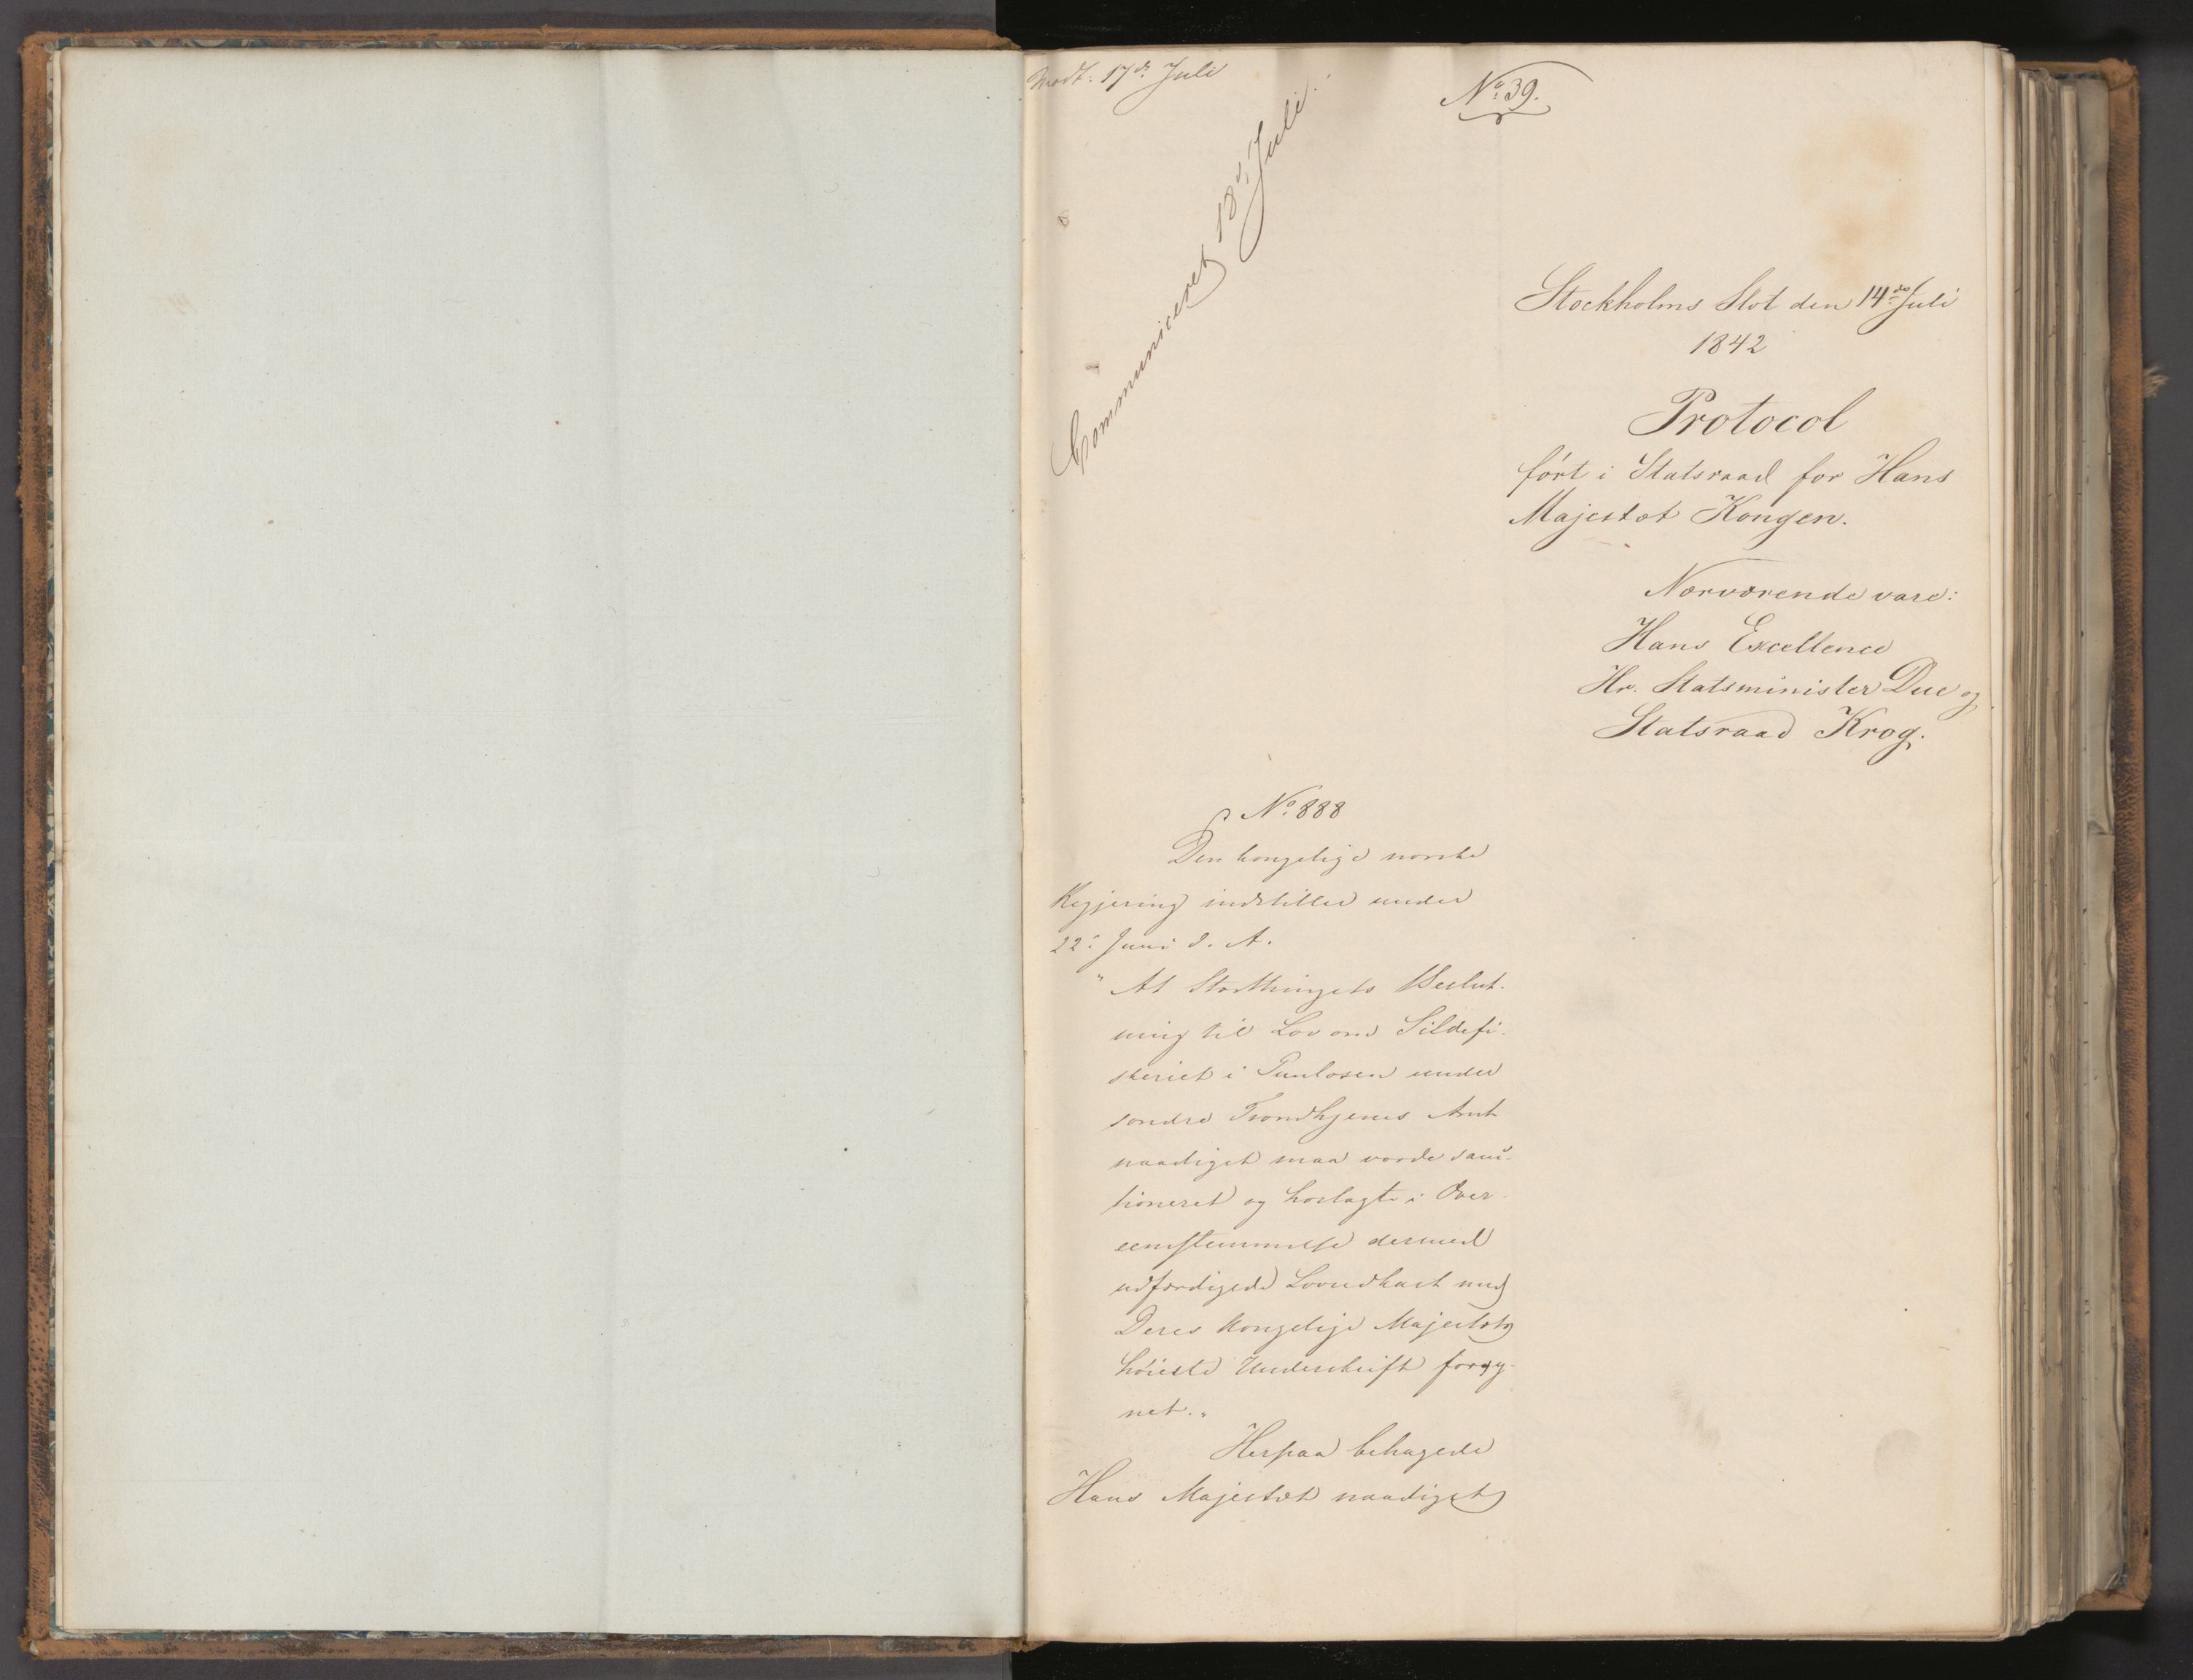 Modt: 17de Juli
No: 39.
Communiceret 18de Juli.
Stockholms Slot den 14de Juli
1842
Protocol
ført i Statsraad for Hans
Majestæt Kongen.
Nærværende vare:
Hans Excellence
Hr. Statsminister Due og
Statsraad Krog.
No. 888
Den kongelige norske
Regjering indstiller under
22: Juni d. A.
"At Storthingets Beslut-
ning til Lov om Sildefi-
skeriet i under
søndre Trondhjems Amt
naadigst maa vorde sanc-
tioneret og hoslagte i Over-
eensstemmelse dermed
udfærdigede Lovudkast med
Deres Kongelige Majestæts
høieste Underskrift forsy-
net."
Herpaa behagede
Hans Majestæt naadigst